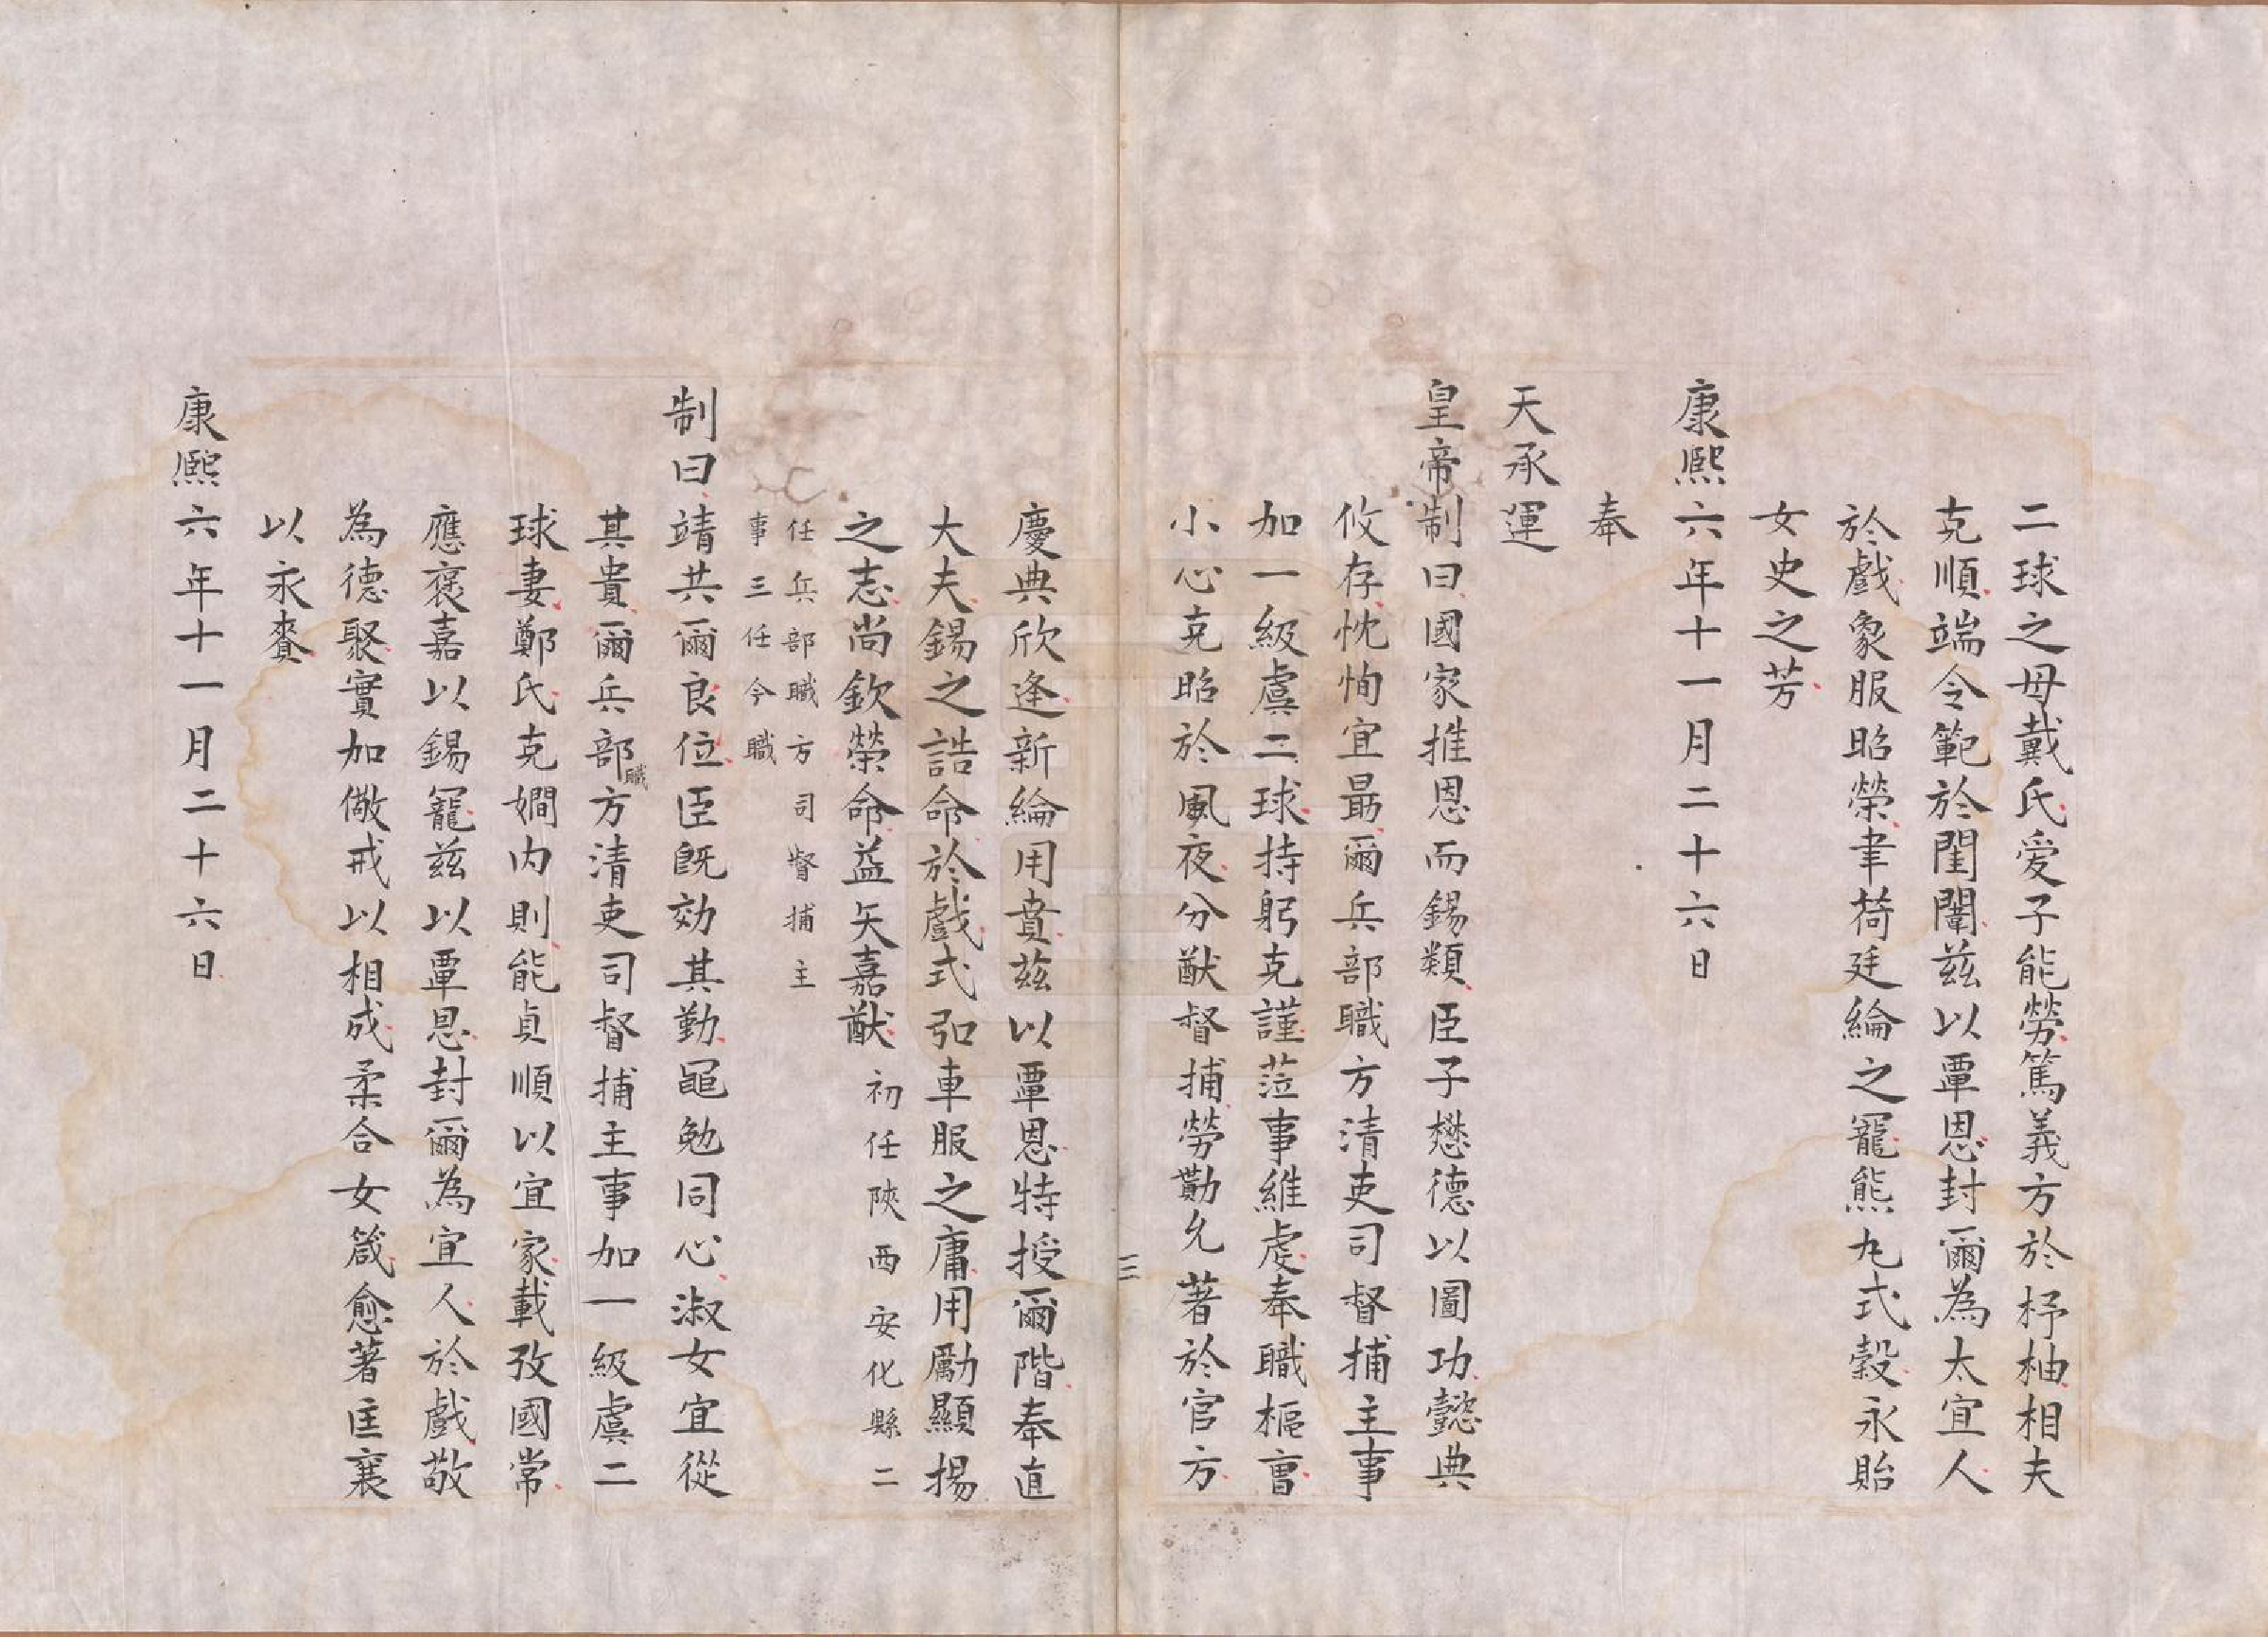 二球之母戴氏愛子能勞篤義方於杼柚相夫
克順端令範於閨闈兹以覃恩封爾為太宜人
於戲象服昭榮聿荷廷綸之寵熊丸式穀永貽
女史之芳
康熙六年十一月二十六日
奉
天承運
皇帝制曰國家推恩而錫類臣子懋德以圖功懿典
攸存忱恂宜勗爾兵部職方清吏司督捕主事
加一級虞二球持躬克謹蒞事維虔奉職樞曹
小心克昭於夙夜分猷督捕勞勩允著於官方
三
慶典欣逢新綸用賁兹以覃恩特授爾階奉直
大夫錫之誥命於戲式弘車服之庸用勵顯揚
之志尚欽榮命益矢嘉猷初任陝西安化縣二
任兵部職方司督捕主
事三任今職
制曰靖共爾良位臣既効其勤黽勉同心淑女宜從
其貴爾兵部職方清吏司督捕主事加一級虞二
球妻鄭氏克嫻内則能貞順以宜家載孜國常
應褒嘉以錫寵兹以覃恩封爾為宜人於戲敬
為德聚實加儆戒以相成柔合女箴愈著匡襄
以永賚
康熙六年十一月二十六日